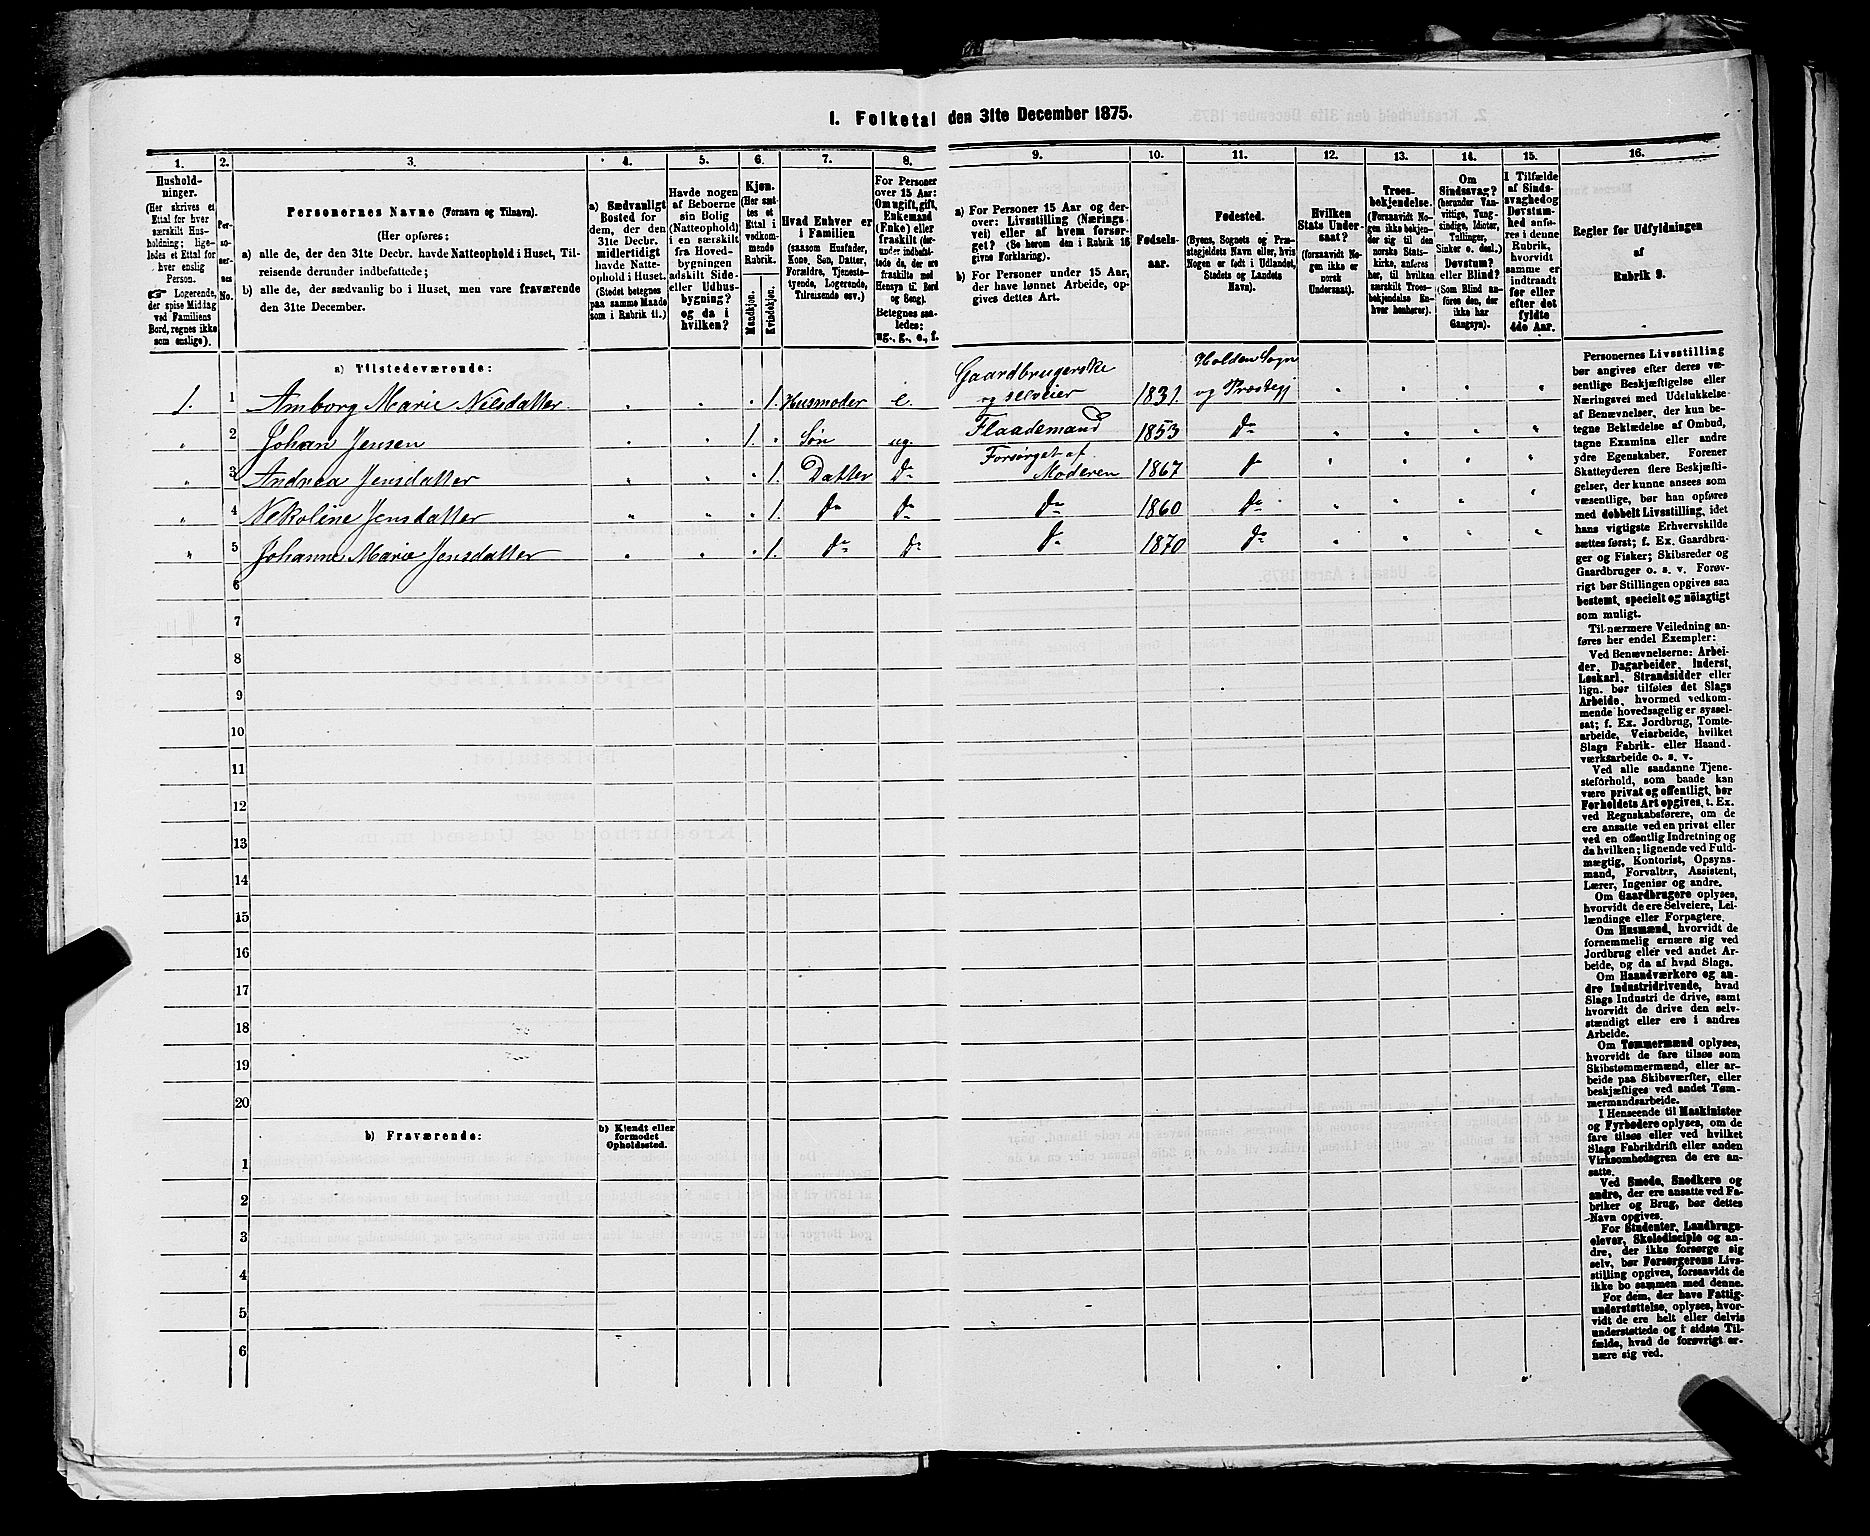 I. Folketal den 31te December 1875.
1. 2. 3. 4. 5. 6. 7. 8. 9. 10. 11. 12. 13. 14. 15. 16.
Hushold-
ninger.
(Her skrives et
Ettal for hver
særskilt Hus-
holdning; lige-
ledes et Ettal for
hver enslig
Person.
☞ Logerende,
der spise Middag
ved Familiens
Bord, regnes ikke
som enslige).
Per-
so-
ner-
nes
No.
Personernes Navne (Fornavn og Tilnavn).
(Her opføres:
a) alle de, der den 31te Decbr. havde Natteophold i Huset, Til-
reisende derunder indbefattede;
b) alle de, der sædvanlig bo i Huset, men vare fraværende
den 31te December.
a) Sædvanligt
Bosted for
dem, der den
31te Decbr.
midlertidigt
havde Natte-
ophold i Huset.
(Stedet betegnes
paa samme Maade
som i Rubrik 11.)
Havde nogen
af Beboerne
sin Bolig
(Natteophold)
i en særskilt
fra Hoved-
bygningen
adskilt Side-
eller Udhus-
bygning?
og da i
hvilken?
Kjøn.
(Her sæt-
tes et
Ettal i
vedkom-
mende
Rubrik.
Mandkjøn.
Kvindekjøn.
Hvad Enhver er
i Familien
(saasom Husfader,
Kone, Søn, Datter,
Forældre, Tjeneste-
tyende, Logerende,
Tilreisende osv.)
For Personer
over 15 Aar:
Om ugift, gift,
Enkemand
(Enke) eller
fraskilt (der-
under indbefat-
tede de, der ere
fraskilte med
Hensyn til Bord
og Seng).
Betegnes saa-
ledes:
ug., g., e., f.
a) For Personer 15 Aar og der-
over: Livsstilling (Nærings-
vei) eller af hvem forsør-
get? (Se herom den i Rubrik 16
givne Forklaring).
b) For Personer under 15 Aar,
der have lønnet Arbeide, op-
gives dettes Art.
Fødsels-
aar.
Fødested.
(Byens, Sognets og Præ-
stegjeldets Navn eller, hvis
Nogen er født i Udlandet,
Stedets og Landets
Navn).
Hvilken
Stats Under-
saat?
(forsaavidt No-
gen ikke er
norsk
Undersaat).
Troes-
bekjendelse.
(Forsaavidt No-
gen ikke bekjen-
der sig til den
norske Stats-
kirke, anføres
her, til hvilken
særskilt Troes-
bekjendelse En-
hver henhører).
Om
Sindssvag?
(herunder Van-
vittige, Tung-
sindige, Idioter,
Tullinger,
Sinker o. desl.)
Døvstum?
eller Blind?
(Som Blind an-
føres den, der
ikke har
Gangsyn).
I Tilfælde
af Sinds-
svaghed og
Døvstum-
hed anfø-
res i denne
Rubrik,
hvorvidt
samme er
indtraadt
før eller
efter det
fyldte
4de Aar.
Regler for Udfyldningen
af
Rubrik 9.
a) Tilstedeværende:
1. 1 Amborg Marie Nilsdatter. „ „ „ 1. Husmoder e. Gaardbrugerske og selveier 1831. Holden Sogn og Præstegj „ „ „ „
„ 2 Johan Jensen „ „ 1. „ Søn ug. Flaademand 1853 do „ „ „ „
„ 3 Andrea Jensdatter „ „ „ 1. Datter do Forsørget af Moderen 1867 do „ „ „ „
„ 4 Nekoline Jensdatter „ „ „ 1. do do do 1860 do „ „ „ „
„ 5 Johanne Marie Jensdatter „ „ „ 1. do do do 1870 do „ „ „ „
6
7
8
9
10
11
12
13
14
15
16
17
18
19
20
b) Fraværende:
b) Kjendt eller
formodet
Opholdssted.
1
2
3
4
5
6
Personernes Livsstilling
bør angives efter deres væ-
sentlige Beskjæftigelse eller
Næringsvei med Udelukkelse
af Benævnelser, der kun be-
tegne Beklædelse af Ombud,
tagne Examina eller andre
ydre Egenskaber. Forener
Skatteyderen flere Beskjæfti-
gelser, der kunne ansees som
væsentlige, bør han opføres
med dobbelt Livsstilling, idet
hans vigtigste Erhvervskilde
sættes først; f. Ex. Gaardbru-
ger og Fisker; Skibsreder og
Gaardbruger o. s. v. Forøv-
rigt bør Stillingen opgives saa
bestemt, specielt og nøiagtigt
som muligt.
Til nærmere Veiledning an-
føres her endel Exempler:
Ved Benævnelserne: Arbei-
der, Dagarbeider, Inderst,
Løskarl, Strandsidder eller
lign. bør tilføies det Slags
Arbeide, hvormed vedkom-
mende hovedsagelig er syssel-
sat; f. Ex. Jordbrug, Tomte-
arbeide, Veiarbeide, hvilket
Slags Fabrik- eller Haand-
værksarbeide o. s. v.
Ved alle saadanne Tjene-
steforhold, som baade kan
være privat og offentligt, bør
Forholdets Art opgives, t. Ex.
ved Regnskabsførere, om de
ere ansatte ved en privat eller
ved en offentlig Indretning og
da hvilken; lignende ved Fuld-
mægtig, Kontorist, Opsyns-
mand, Forvalter, Assistent,
Lærer, Ingeniør og andre.
Om Gaardbrugere oplyses,
hvorvidt de ere Selveiere, Lei-
lændinge eller Forpagtere.
Om Husmænd, hvorvidt de
fornemmelig ernære sig ved
Jordbrug eller ved andet Ar-
beide, og da af hvad Slags.
Om Haandværkere og an-
dre Industridrivende, hvad
Slags Industri de drive, samt
hvorvidt de drive den selv-
stændigt eller ere i andres
Arbeide.
Om Tømmermænd oplyses,
hvorvidt de fare tilsøs som
Skibstømmermænd, eller ar-
beide paa Skibsværfter, eller
beskjæftiges ved andet Tøm-
mermandsarbeide.
I Henseende til Maskinister
og Fyrbødere oplyses, om de
fare tilsøs eller ved hvilket
Slags Fabrikdrift eller anden
Virksomhedsgren de ere an-
satte.
Ved Smede, Snedkere og
andre, der ere ansatte ved Fa-
briker og Brug, bør dettes
Navn opgives.
For Studenter, Landbrugs-
elever, Skoledisciple og an-
dre, der ikke forsørge sig
selv, bør Forsørgerens Livs-
stilling opgives, forsaavidt de
ikke bo sammen med denne.
For dem, der have Fattig-
understøttelse, oplyses, hvor-
vidt de ere helt eller delvis
understøttede og i sidste Til-
fælde, hvad de forøvrigt er-
nære sig ved.